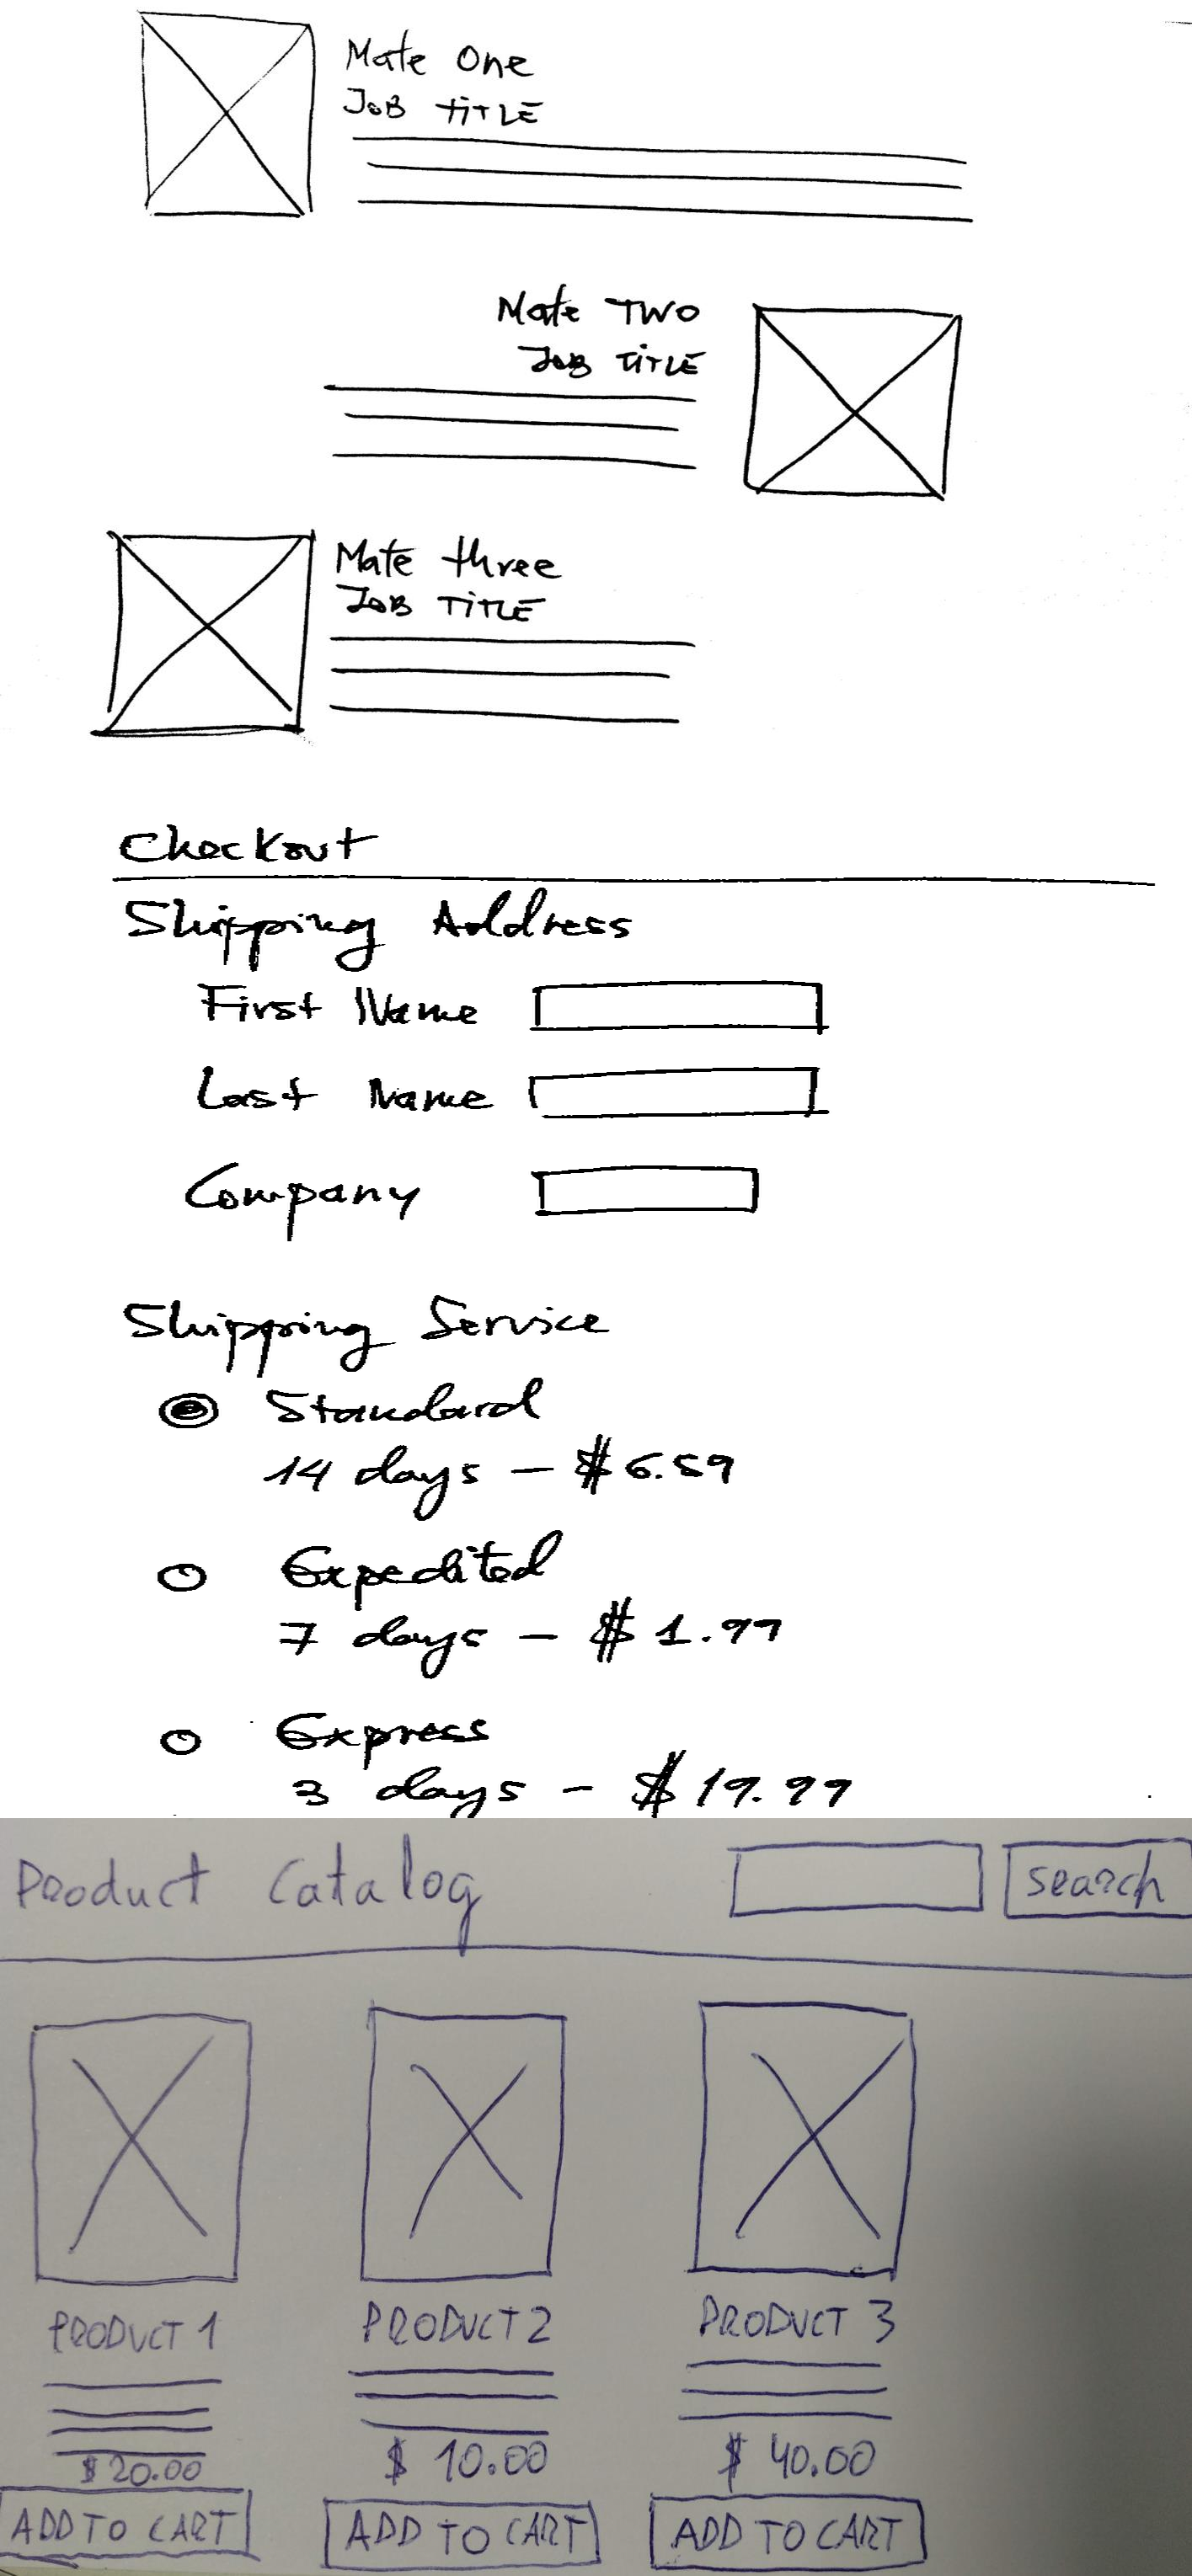 Mate One
JOB TITLE
Mate TWO
JOB TITLE
Mate three
JOB TITLE
Checkout
Shipping Address
First Name
Last Name
Company
Shipping Service
Standard
14 days - $6.59
Expedited
7 days - $1.99
Express
3 days - $19.99
Product Catalog
search
PRODUCT 1 PRODUCT 2 PRODUCT 3
$20.00 $ 10.00 $ 40.00
ADD TO CART ADD TO CART ADD TO CART